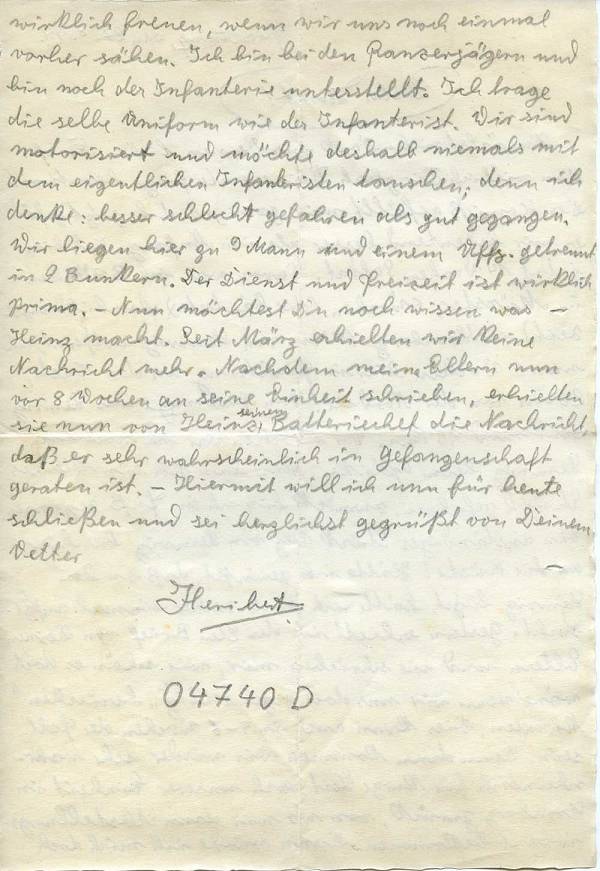 wirklich freuen, wenn wir uns noch einmal
vorher sähen. Ich bin bei den Panzerjägern und
bin noch der Infanterie unterstellt. Ich trage
die selbe Uniform wie der Infanterist. Wir sind
motorisiert und möchte deshalb niemals mit
dem eigentlichen Infantristen tauschen, denn ich
denke: besser schlecht gefahren als gut gegangen.
Wir liegen hier zu 9 Mann und einem Uffz. getrennt
in 2 Bunkern. Der Dienst und Freizeit ist wirklich
prima. – Nun möchtest Du noch wissen was –
Heinz macht. Seit März erhielten wir keine
Nachricht mehr. Nachdem meine Eltern nun
vor 8 Wochen an seine Einheit schrieben, erhielten
sie nun von Heinz, seinem Batteriechef die Nachricht,
daß er sehr wahrscheinlich in Gefangenschaft
geraten ist. – Hiermit will ich nun für heute
schließen und sei herzlichst gegrüßt von Deinem
Vetter –
Heribert
04740 D